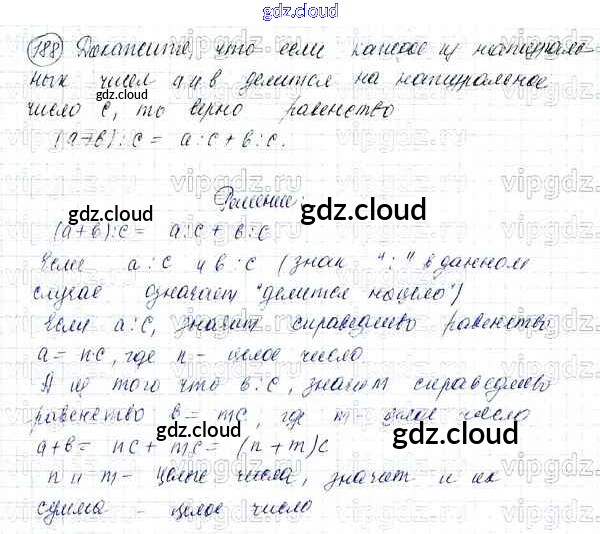 gdz.cloud
188 Докажите, что если каждое из натураль
ных чисел a и в делится на натуральное
gdz.cloud
число c, то верно равенство
(a+в):c = a:c + в:c.
Решение:
gdz.cloud
gdz.cloud
(a+в):c = a:c + в:c
Если a:c и в:c (знак ":" в данном
случае означает "делится нацело")
Если a:c, значит справедливо равенство
a = nc, где n - целое число.
А из того что в:c, значит справедливо
равенство в = mc, где m - целое число
gdz.cloud
gdz.cloud
a+в = nc + mc = (n+m)c
n и m - целые числа, значит и их
gdz.cloud
сумма - целое число